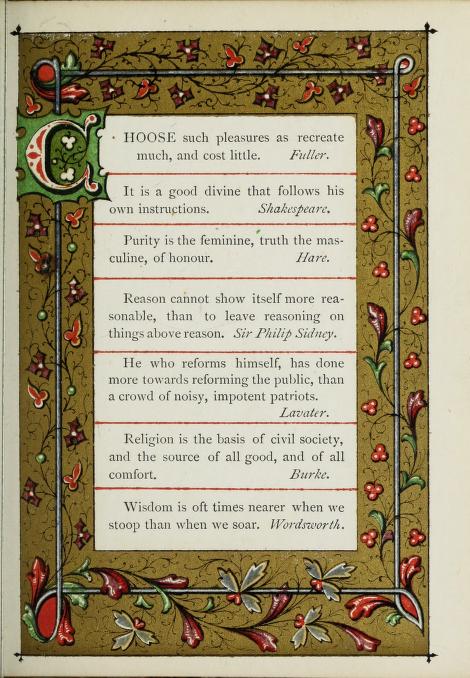 CHOOSE such pleasures as recreate
much, and cost little. Fuller.
It is a good divine that follows his
own instructions. Shakespeare.
Purity is the feminine, truth the mas-
culine, of honour. Hare.
Reason cannot show itself more rea-
sonable, than to leave reasoning on
things above reason. Sir Philip Sidney.
He who reforms himself, has done
more towards reforming the public, than
a crowd of noisy, impotent patriots.
Lavater.
Religion is the basis of civil society,
and the source of all good, and of all
comfort. Burke.
Wisdom is oft times nearer when we
stoop than when we soar. Wordsworth.